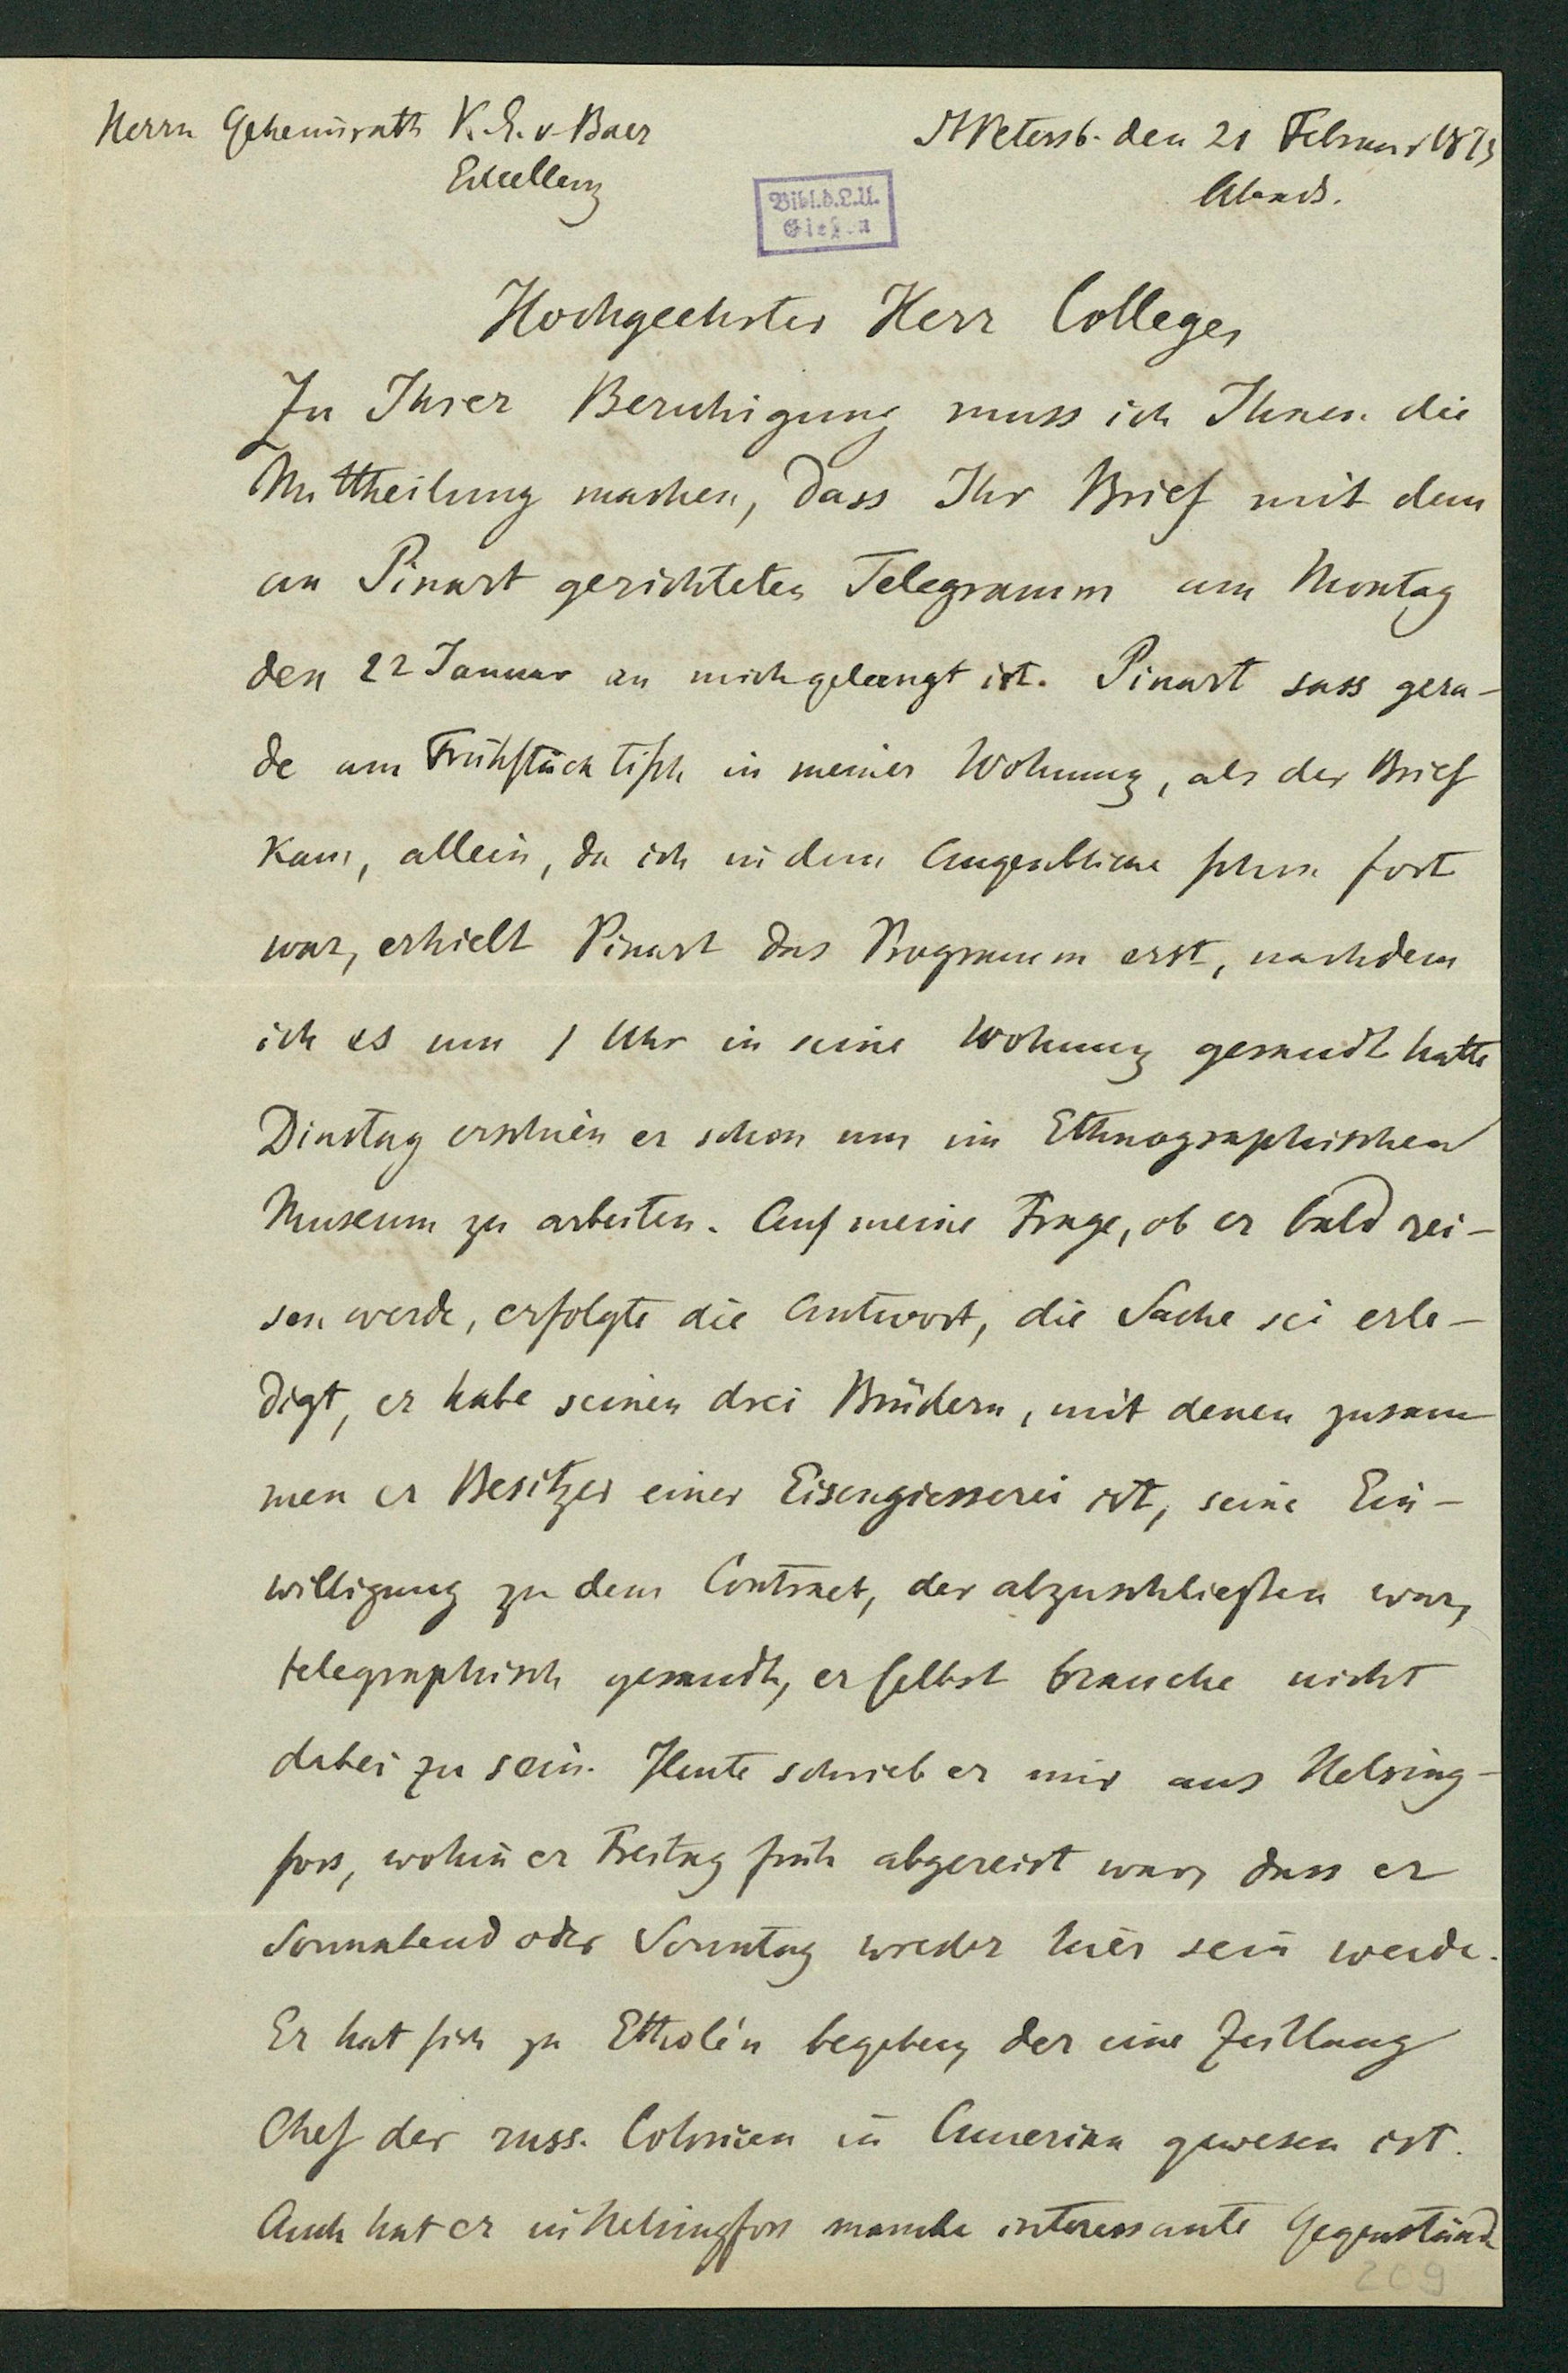 Herrn Geheimrath K. E. v. Baer
Excellenz
St Petersb. den 21 Februar 1873
Abends.
Bibl. d. L. U.
Gießen
Hochgeehrter Herr College,
Zu Ihrer Beruhigung muss ich Ihnen die
Mittheilung machen, dass Ihr Brief mit dem
an Pinart gerichteten Telegramm am Montag
den 22 Januar an mich gelangt ist. Pinart sass gera-
de am Frühstücktisch in meiner Wohnung, als der Brief
kam, allein, da ich in dem Augenblicke schon fort
war, erhielt Pinart das Programm erst, nachdem
ich es um 1 Uhr in seine Wohnung gesandt hatte
Dinstag erschien er schon um im Ethnographischen
Museum zu arbeiten. Auf meine Frage, ob er bald rei-
sen werde, erfolgte die Antwort, die Sache sei erle-
digt, er habe seinen drei Brüdern, mit denen zusam
men er Besitzer einer Eisengiesserei ist, seine Ein-
willigung zu dem Contract, der abzuschließen war,
telegraphisch gesandt, er selbst brauche nicht
dabei zu sein. Heute schrieb er mir aus Helsing-
fors, wohin er Freitag früh abgereist war, dass er
Sonnabend oder Sonntag wieder hier sein werde.
Er hat sich zu Etholén begeben, der eine Zeitlang
Chef der russ. Colonien in America gewesen ist.
Auch hat er in Helsingfors manche interessante Gegenstände
209